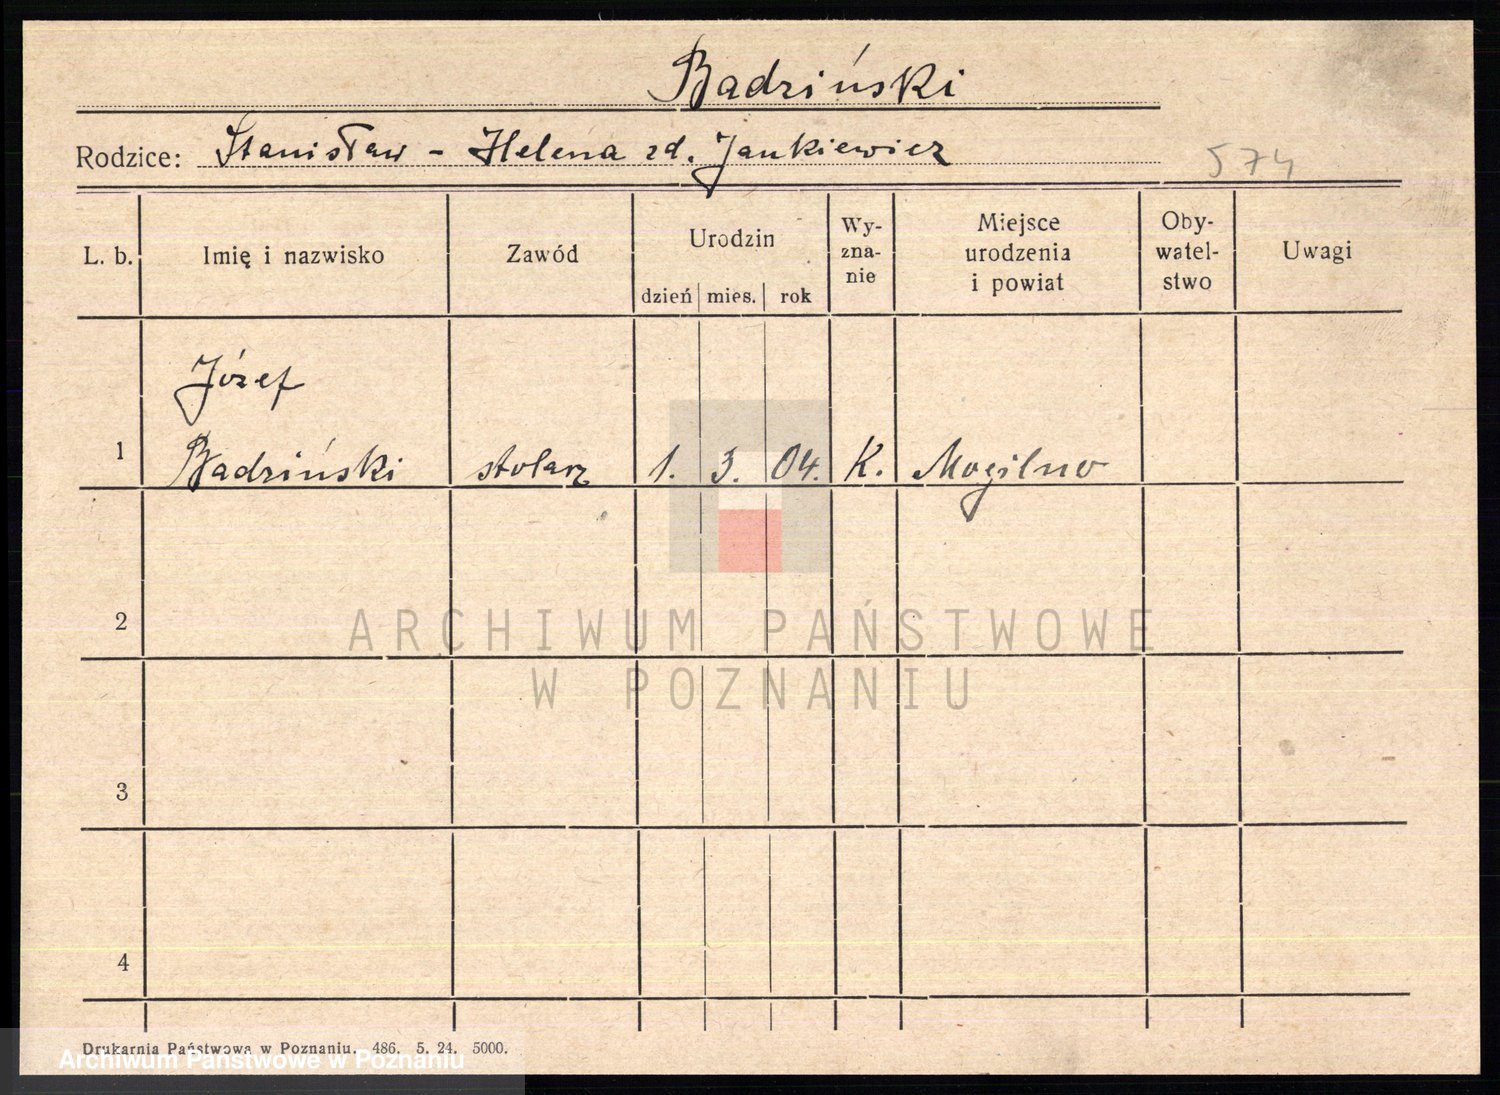 Badziński
Rodzice: Stanisław - Helena zd. Jankiewicz
574
L. b. Imię i nazwisko Zawód Urodzin dzień mies. rok Wy-
zna-
nie Miejsce
urodzenia
i powiat Oby-
watel-
stwo Uwagi
Józef
1 Badziński stolarz 1. 3. 04. K. Mogilno
2
ARCHIWUM PAŃSTWOWE
W POZNANIU
3
4
Drukarnia Państwowa w Poznaniu. 486. 5. 24. 5000.
Archiwum Państwowe w Poznaniu